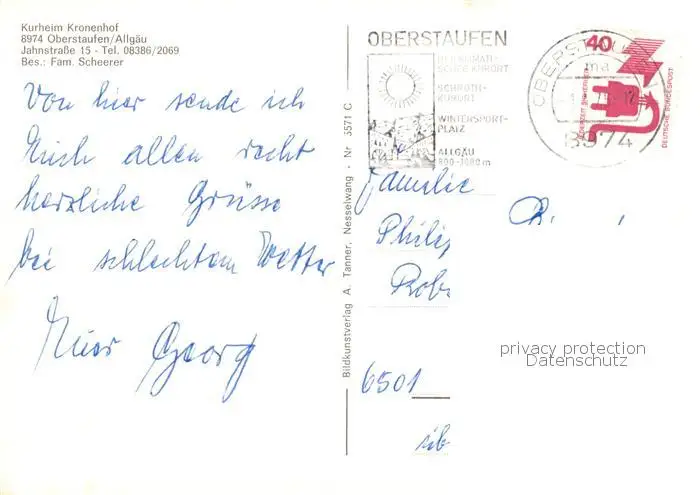 Kurheim Kronenhof
8974 Oberstaufen/Allgäu
Jahnstraße 15 - Tel. 08386/2069
Bes.: Fam. Scheerer
Von hier sende ich
Euch allen recht
herzliche Grüsse
bei schlechtem Wetter
Euer Georg
Bildkunstverlag A. Tanner, Nesselwang · Nr. 3571 C
OBERSTAUFEN
SCHROTH-
KURORT
WINTERSPORT-
PLATZ
ALLGÄU
800-1080 m
OBERSTAUFEN
ma
8974
40
JEDERZEIT SICHERHEIT
DEUTSCHE BUNDESPOST
Familie
Philip
Rob
6501
privacy protection
Datenschutz